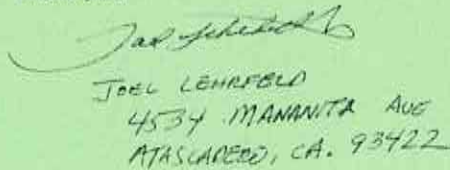 JOEL LEHRFELD
4534 MANANITA AVE
ATASCADERO, CA. 93422